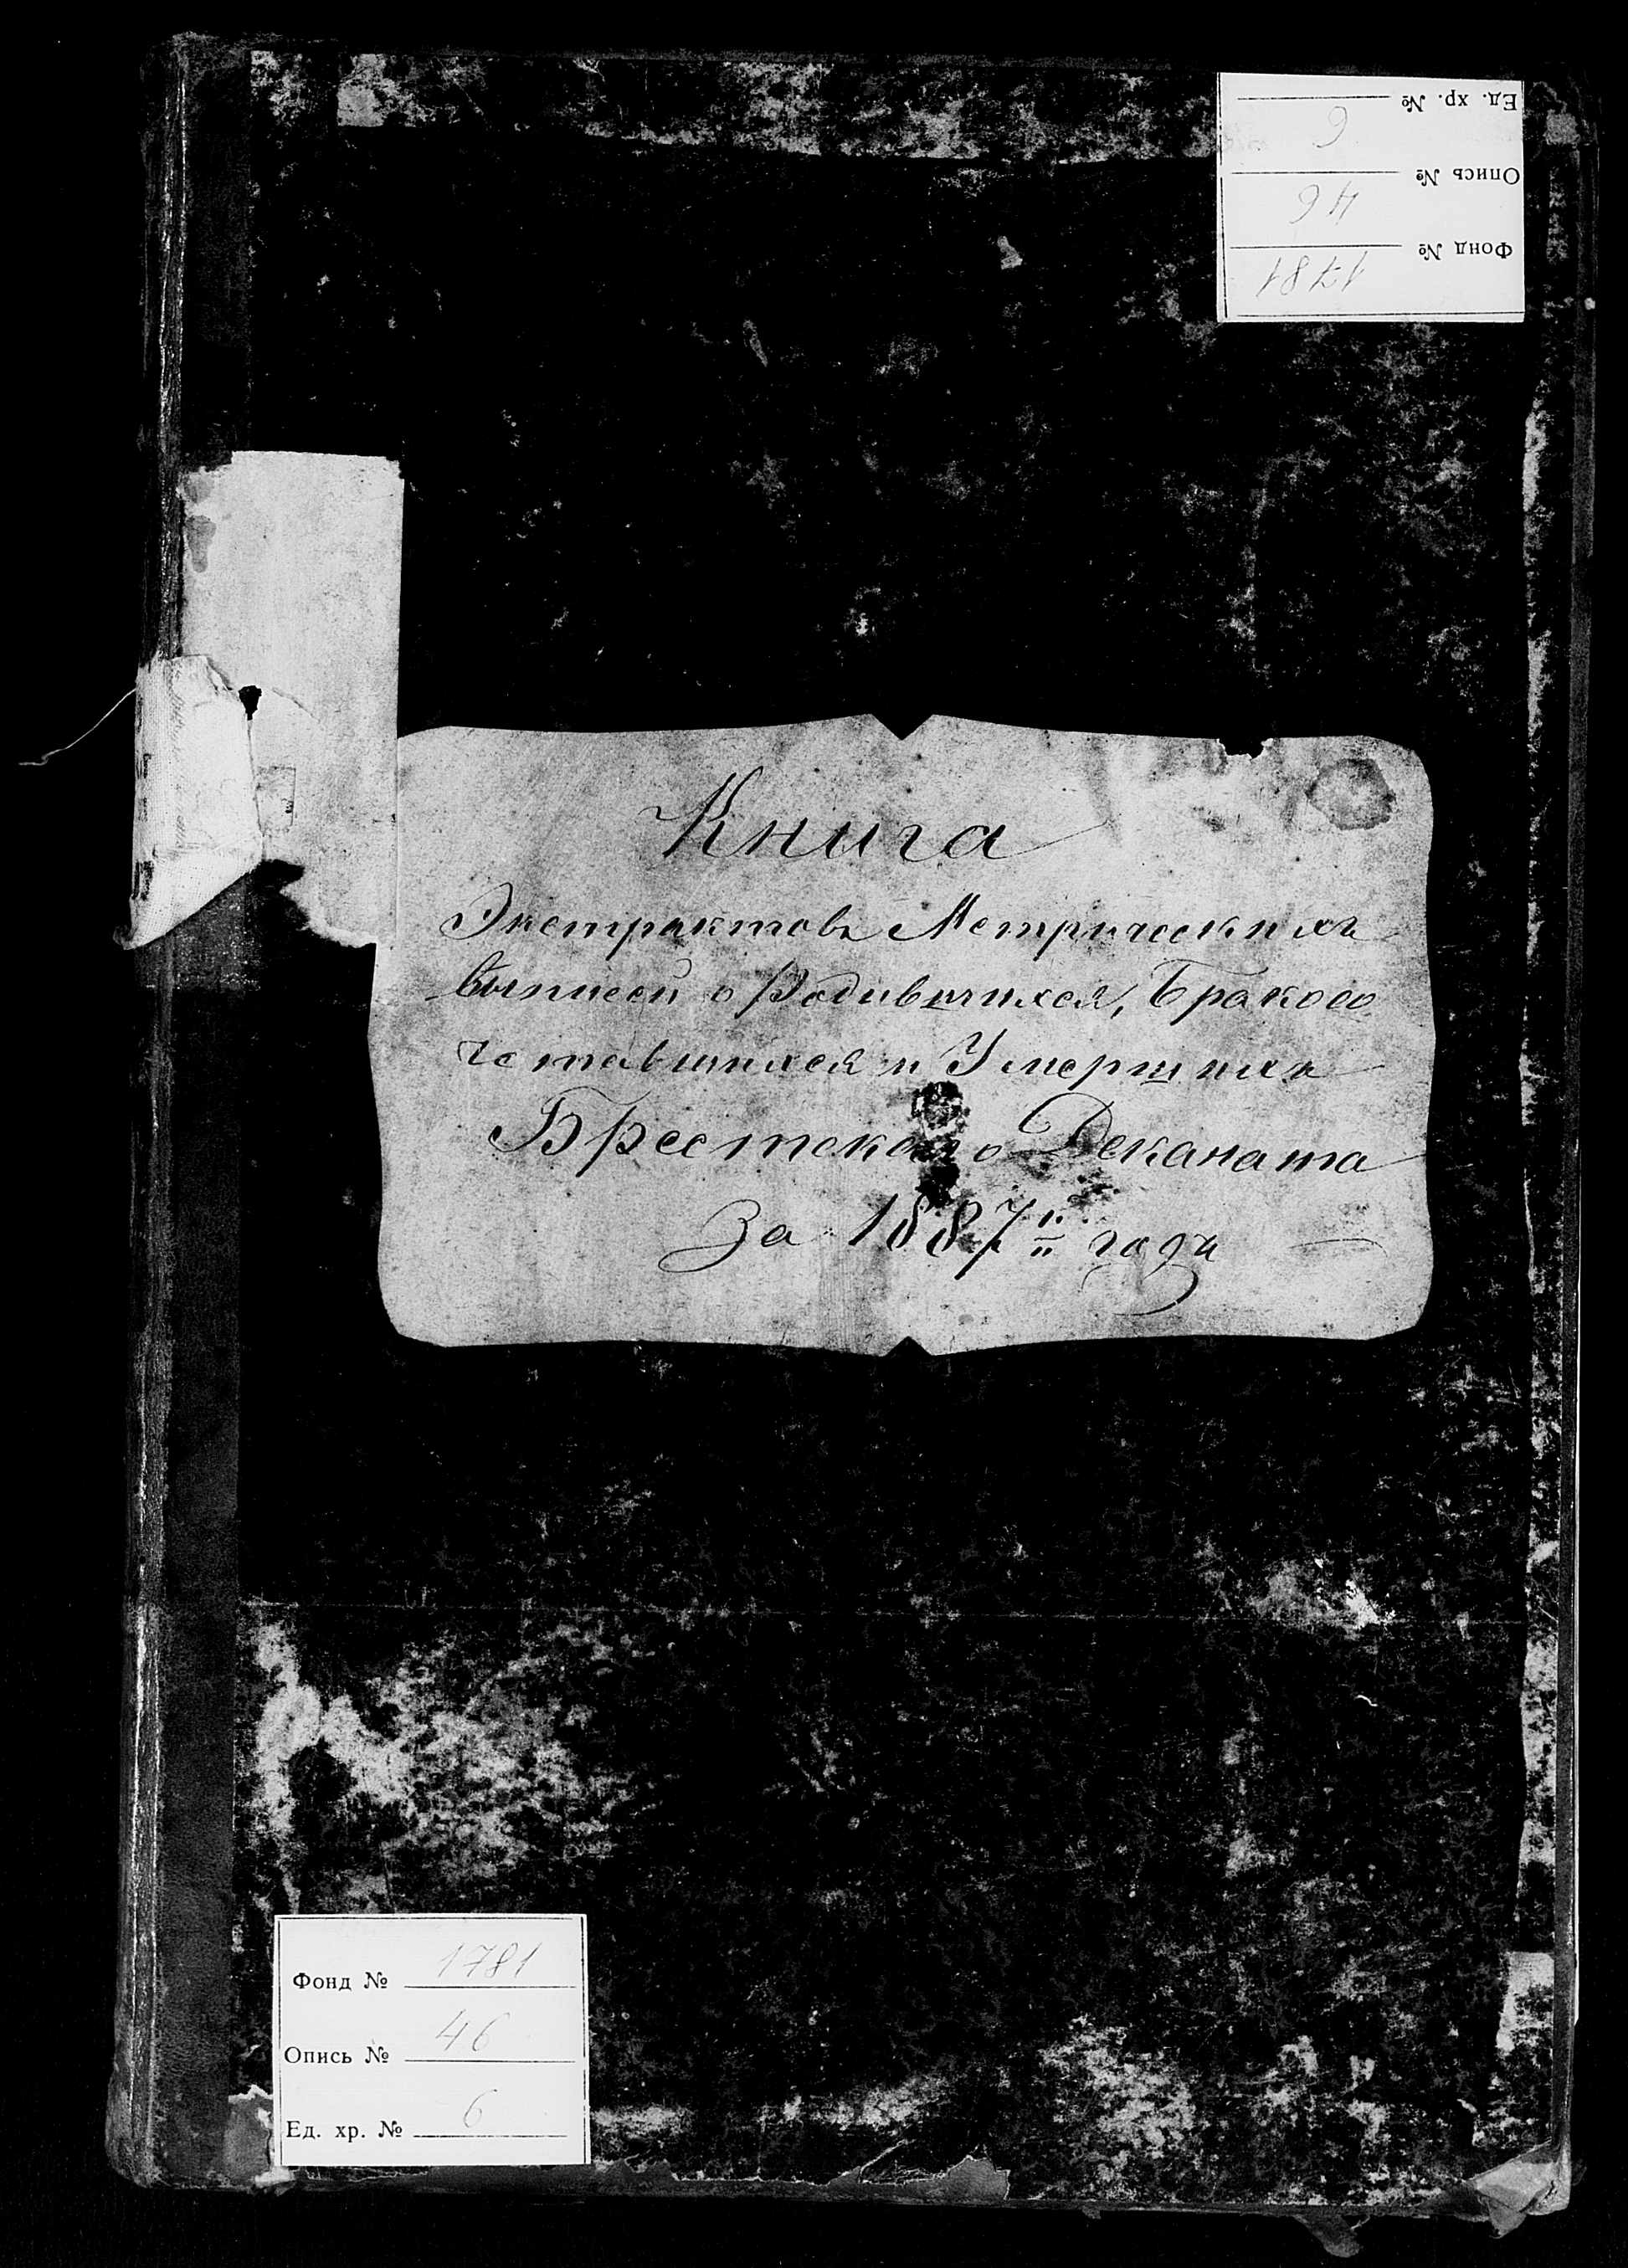 Ед. хр. № 6
Опись № 46
Фонд № 1781
Книга
Экстрактовъ Метрическихъ
выписей о Родившихся, Бракосо
четавшихся и Умершихъ
Брестскаго Деканата
За 1887й годъ
Фонд № 1781
Опись № 46
Ед. хр. № 6